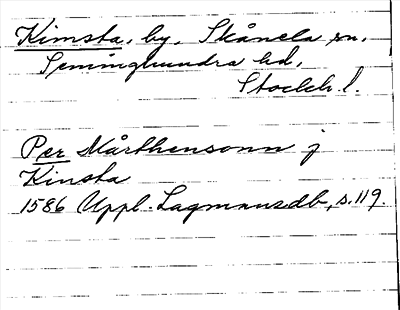 Kimsta, by, Skånela sn.
Seminghundra hd,
Stockh. l.
Per Mårthensonn j
Kinsta
1586 Uppl. Lagmansdb, s. 119.